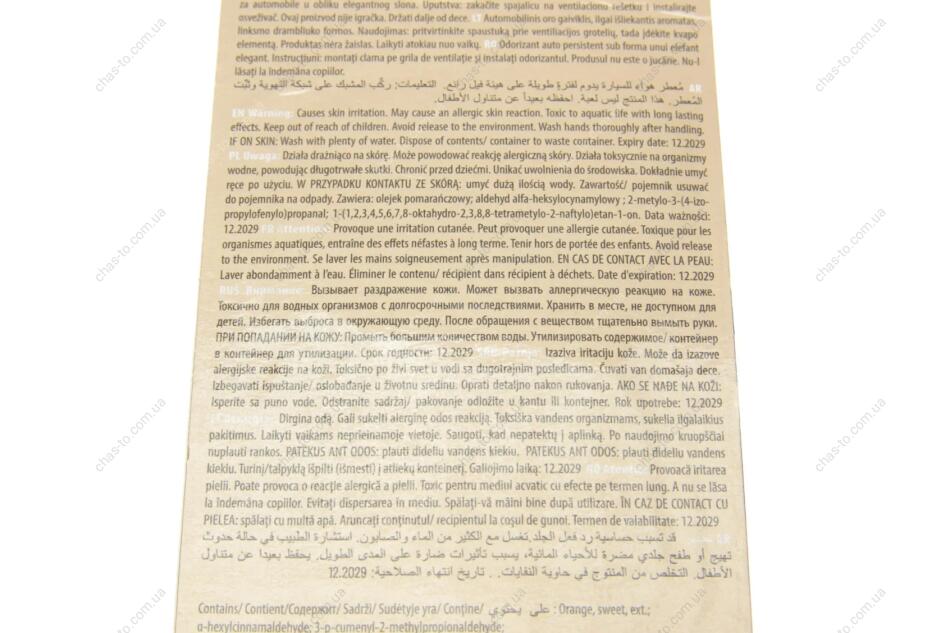 za automobile u obliku elegantnog slona. Uputstva: zakačite spajalicu na ventilacionu rešetku i instalirajte
osveživač. Ovaj proizvod nije igračka. Držati dalje od dece. LT Automobilinis oro gaiviklis, ilgai išliekantis aromatas,
linksmo drambliuko formos. Naudojimas: pritvirtinkite spaustuką prie ventiliacijos grotelių, tada įdėkite kvapo
elementą. Produktas nėra žaislas. Laikyti atokiau nuo vaikų. RO Odorizant auto persistent sub forma unui elefant
elegant. Instrucțiuni: montați clama pe grila de ventilație și instalați odorizantul. Produsul nu este o jucărie. Nu-l
lăsați la îndemâna copiilor.
AR مُعطر هواء للسيارة يدوم لفترة طويلة على هيئة فيل رائع. التعليمات: ركّب المشبك على شبكة التهوية وثبّت
المُعطر. هذا المنتج ليس لعبة. احفظه بعيداً عن متناول الأطفال.
EN Warning: Causes skin irritation. May cause an allergic skin reaction. Toxic to aquatic life with long lasting
effects. Keep out of reach of children. Avoid release to the environment. Wash hands thoroughly after handling.
IF ON SKIN: Wash with plenty of water. Dispose of contents/ container to waste container. Expiry date: 12.2029
PL Uwaga: Działa drażniąco na skórę. Może powodować reakcję alergiczną skóry. Działa toksycznie na organizmy
wodne, powodując długotrwałe skutki. Chronić przed dziećmi. Unikać uwolnienia do środowiska. Dokładnie umyć
ręce po użyciu. W PRZYPADKU KONTAKTU ZE SKÓRĄ: umyć dużą ilością wody. Zawartość/ pojemnik usuwać
do pojemnika na odpady. Zawiera: olejek pomarańczowy; aldehyd alfa-heksylocynamylowy ; 2-metylo-3-(4-izo-
propylofenylo)propanal; 1-(1,2,3,4,5,6,7,8-oktahydro-2,3,8,8-tetrametylo-2-naftylo)etan-1-on. Data ważności:
12.2029 FR Attention: Provoque une irritation cutanée. Peut provoquer une allergie cutanée. Toxique pour les
organismes aquatiques, entraîne des effets néfastes à long terme. Tenir hors de portée des enfants. Avoid release
to the environment. Se laver les mains soigneusement après manipulation. EN CAS DE CONTACT AVEC LA PEAU:
Laver abondamment à l'eau. Éliminer le contenu/ récipient dans récipient à déchets. Date d'expiration: 12.2029
RUS Внимание: Вызывает раздражение кожи. Может вызвать аллергическую реакцию на коже.
Токсично для водных организмов с долгосрочными последствиями. Хранить в месте, не доступном для
детей. Избегать выброса в окружающую среду. После обращения с веществом тщательно вымыть руки.
ПРИ ПОПАДАНИИ НА КОЖУ: Промыть большим количеством воды. Утилизировать содержимое/ контейнер
в контейнер для утилизации. Срок годности: 12.2029 SRB Pažnja: Izaziva iritaciju kože. Može da izazove
alergijske reakcije na koži. Toksično po živi svet u vodi sa dugotrajnim posledicama. Čuvati van domašaja dece.
Izbegavati ispuštanje/ oslobađanje u životnu sredinu. Oprati detaljno nakon rukovanja. AKO SE NAĐE NA KOŽI:
Isperite sa puno vode. Odstranite sadržaj/ pakovanje odložite u kantu ili kontejner. Rok upotrebe: 12.2029
Dirgina odą. Gali sukelti alerginę odos reakciją. Toksiška vandens organizmams, sukelia ilgalaikius
pakitimus. Laikyti vaikams neprieinamoje vietoje. Saugoti, kad nepatektų į aplinką. Po naudojimo kruopščiai
nuplauti rankos. PATEKUS ANT ODOS: plauti dideliu vandens kiekiu. PATEKUS ANT ODOS: plauti dideliu vandens
kiekiu. Turinį/talpyklą išpilti (išmesti) į atliekų konteinerį. Galiojimo laiką: 12.2029 RO Atenție: Provoacă iritarea
pielii. Poate provoca o reacție alergică a pielii. Toxic pentru mediul acvatic cu efecte pe termen lung. A nu se lăsa
la îndemâna copiilor. Evitați dispersarea în mediu. Spălați-vă mâini bine după utilizare. ÎN CAZ DE CONTACT CU
PIELEA: spălați cu multă apă. Aruncați conținutul/ recipientul la coșul de gunoi. Termen de valabilitate: 12.2029
AR قد تسبب حساسية رد فعل الجلد.تغسل مع الكثير من الماء والصابون. استشارة الطبيب في حالة حدوث
تهيج أو طفح جلدي مضرة للأحياء المائية، يسبب تأثيرات ضارة على المدى الطويل. يحفظ بعيدا عن متناول
الأطفال. التخلص من المنتوج في حاوية النفايات. . تاريخ انتهاء الصلاحية: 12.2029
Contains/ Contient/Содержит/ Sadrži/ Sudėtyje yra/ Conține/ على يحتوي : Orange, sweet, ext.;
α-hexylcinnamaldehyde; 3-p-cumenyl-2-methylpropionaldehyde;